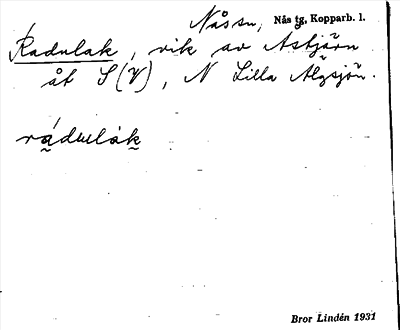 Nåssn, Nås tg, Kopparb. l.
Radulak, vik av Astjärn
åt S (V), N Lilla Älgsjön.
rádulak
Bror Lindén 1931